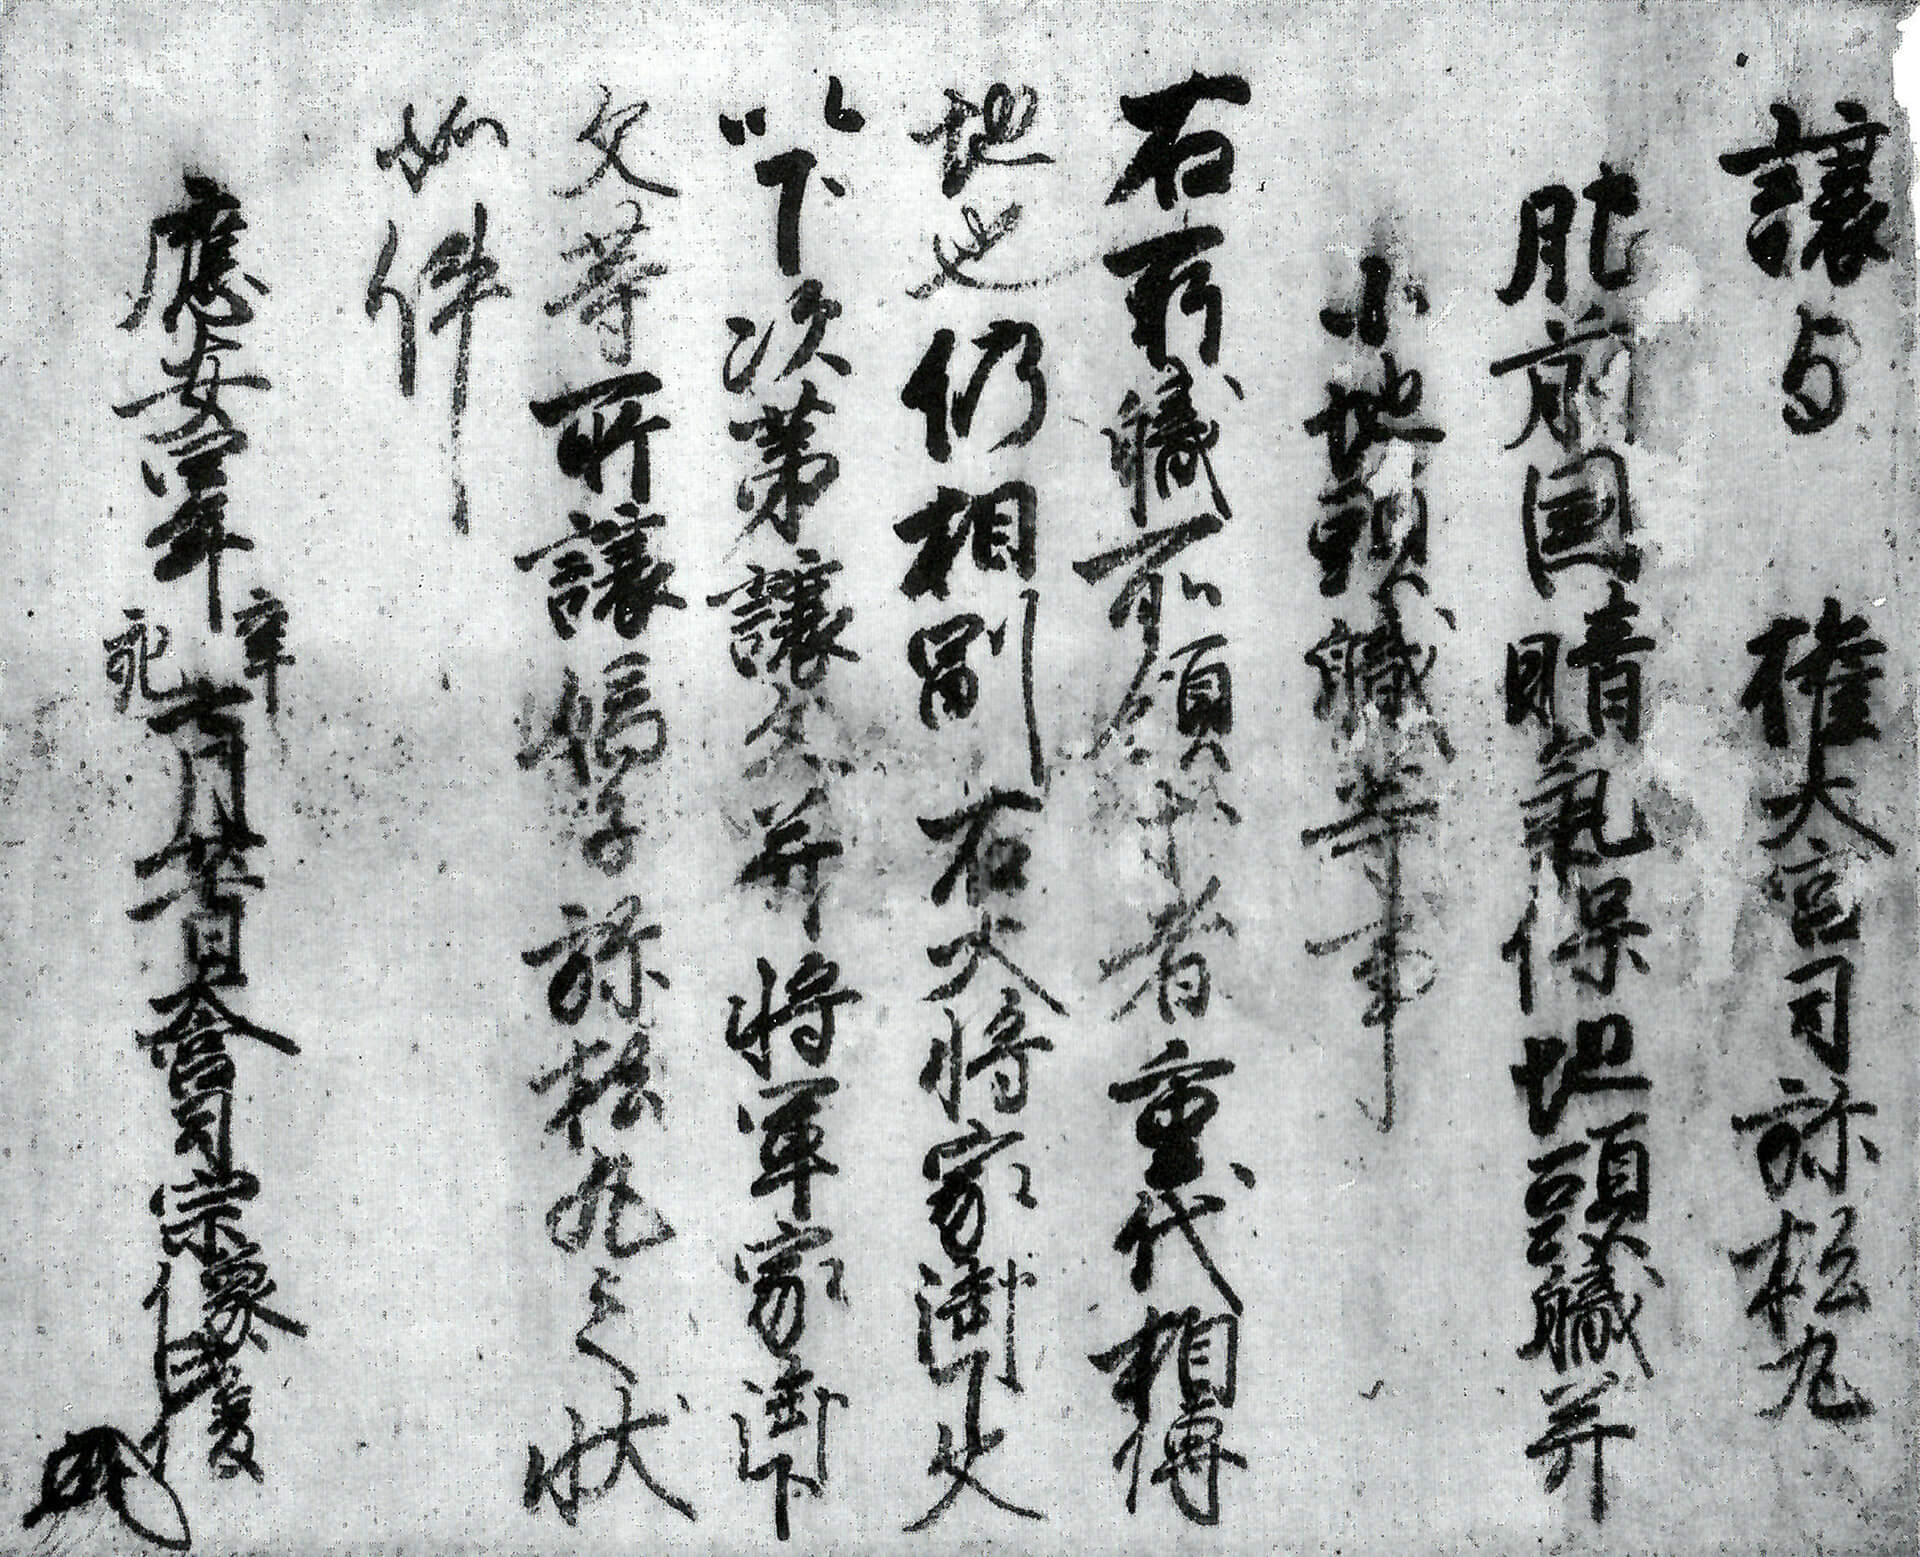 譲与　権大宮司弥松丸
肥前国晴氣保地頭職并
小地頭職等事
右所職所領等者重代相傳
地也仍相副右大将家御下文
以下次第譲文并将軍家御下
文等所譲嫡子弥松丸之状
如件
應安四年辛亥七月廿日大宮司宗像